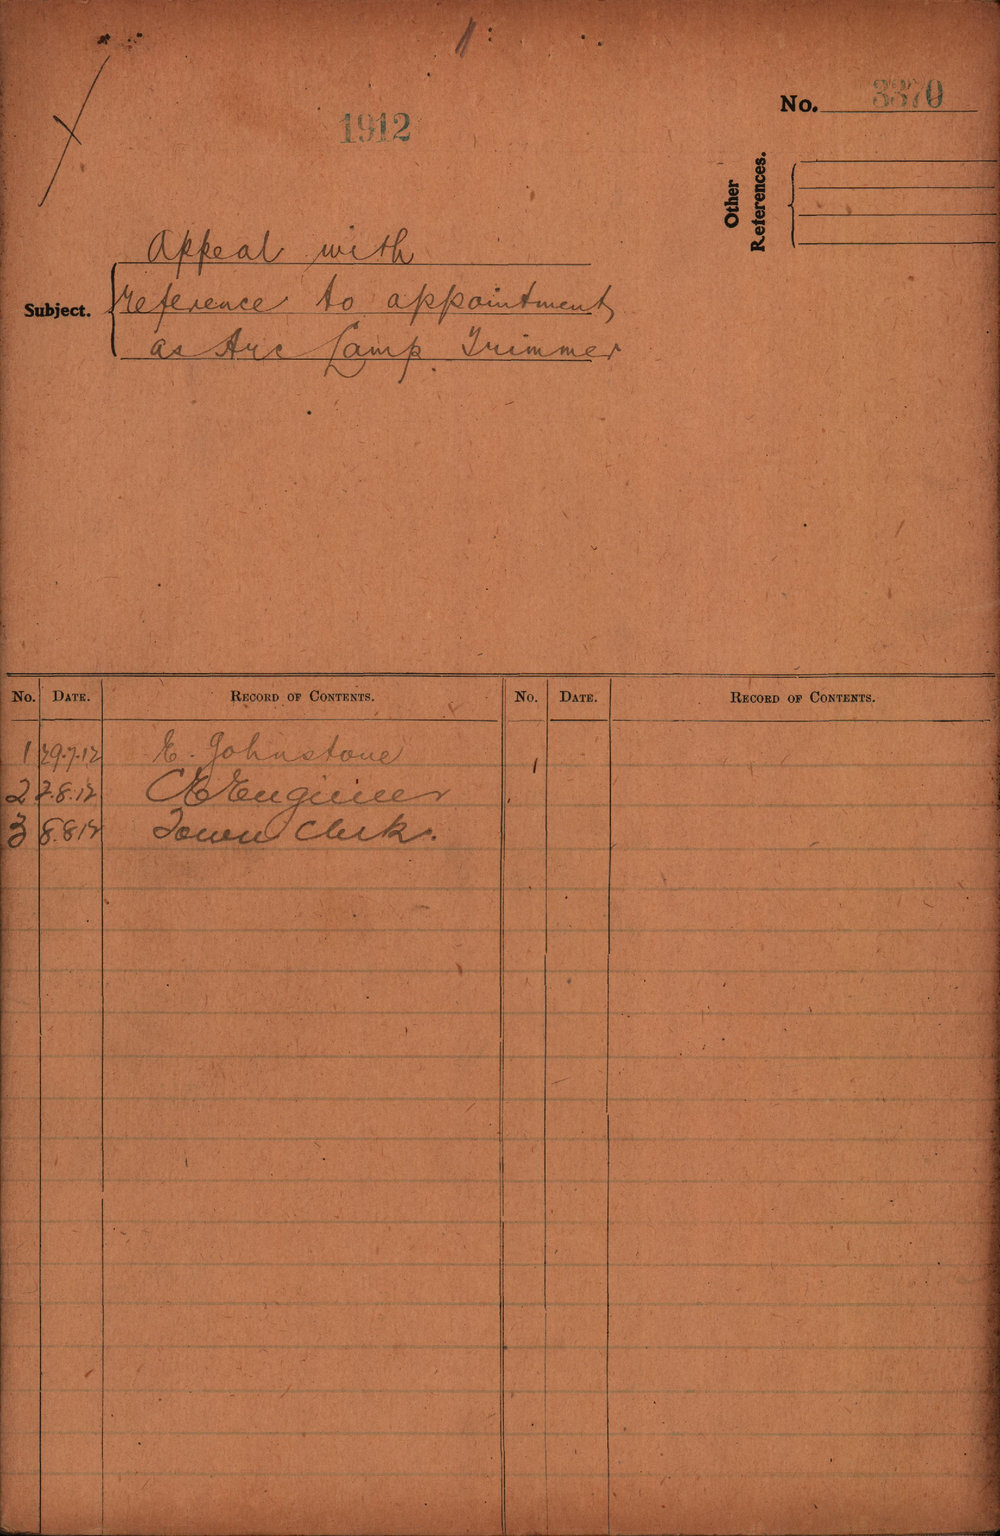 1912
No. 3370
Other References.
Subject.
Appeal with
reference to appointment
as Arc Lamp Trimmer
No. DATE. RECORD OF CONTENTS. No. DATE. RECORD OF CONTENTS.
1 29.7.12 E. Johnstone
2 2.8.12 CE Engineer
3 8.8.12 Town Clerk.